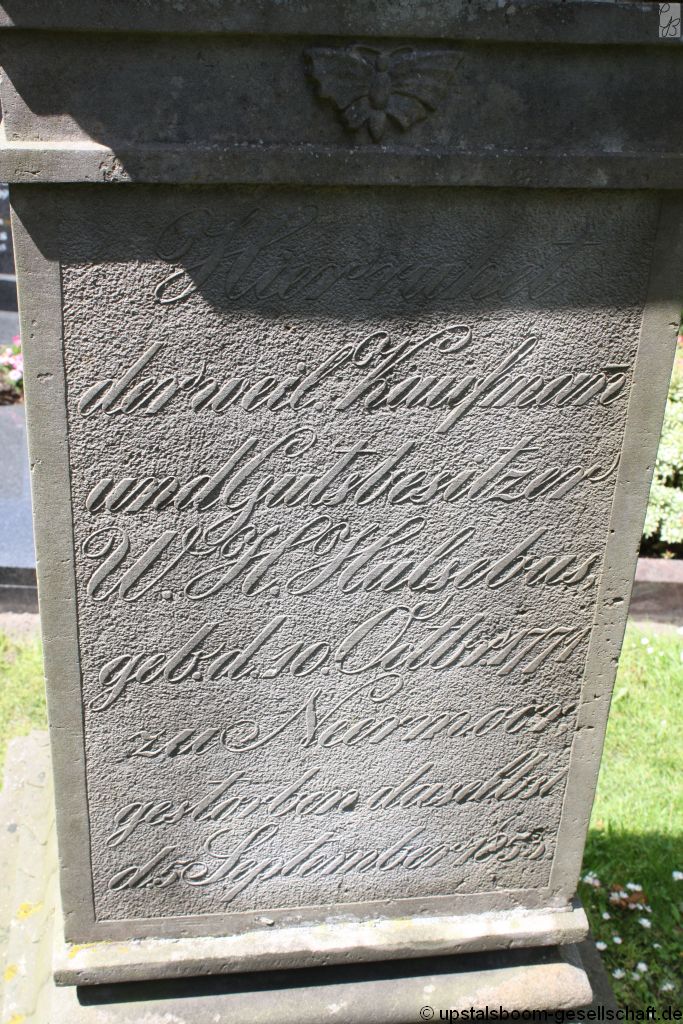 Hier ruhet
der weil. Kaufmañ
und Gutsbesitzer
W. H. Hülsebus,
geb. d. 10. Octbr. 1771
zu Neermoor
gestorben daselbst
d. 5 September 1853.
© upstalsboom-gesellschaft.de